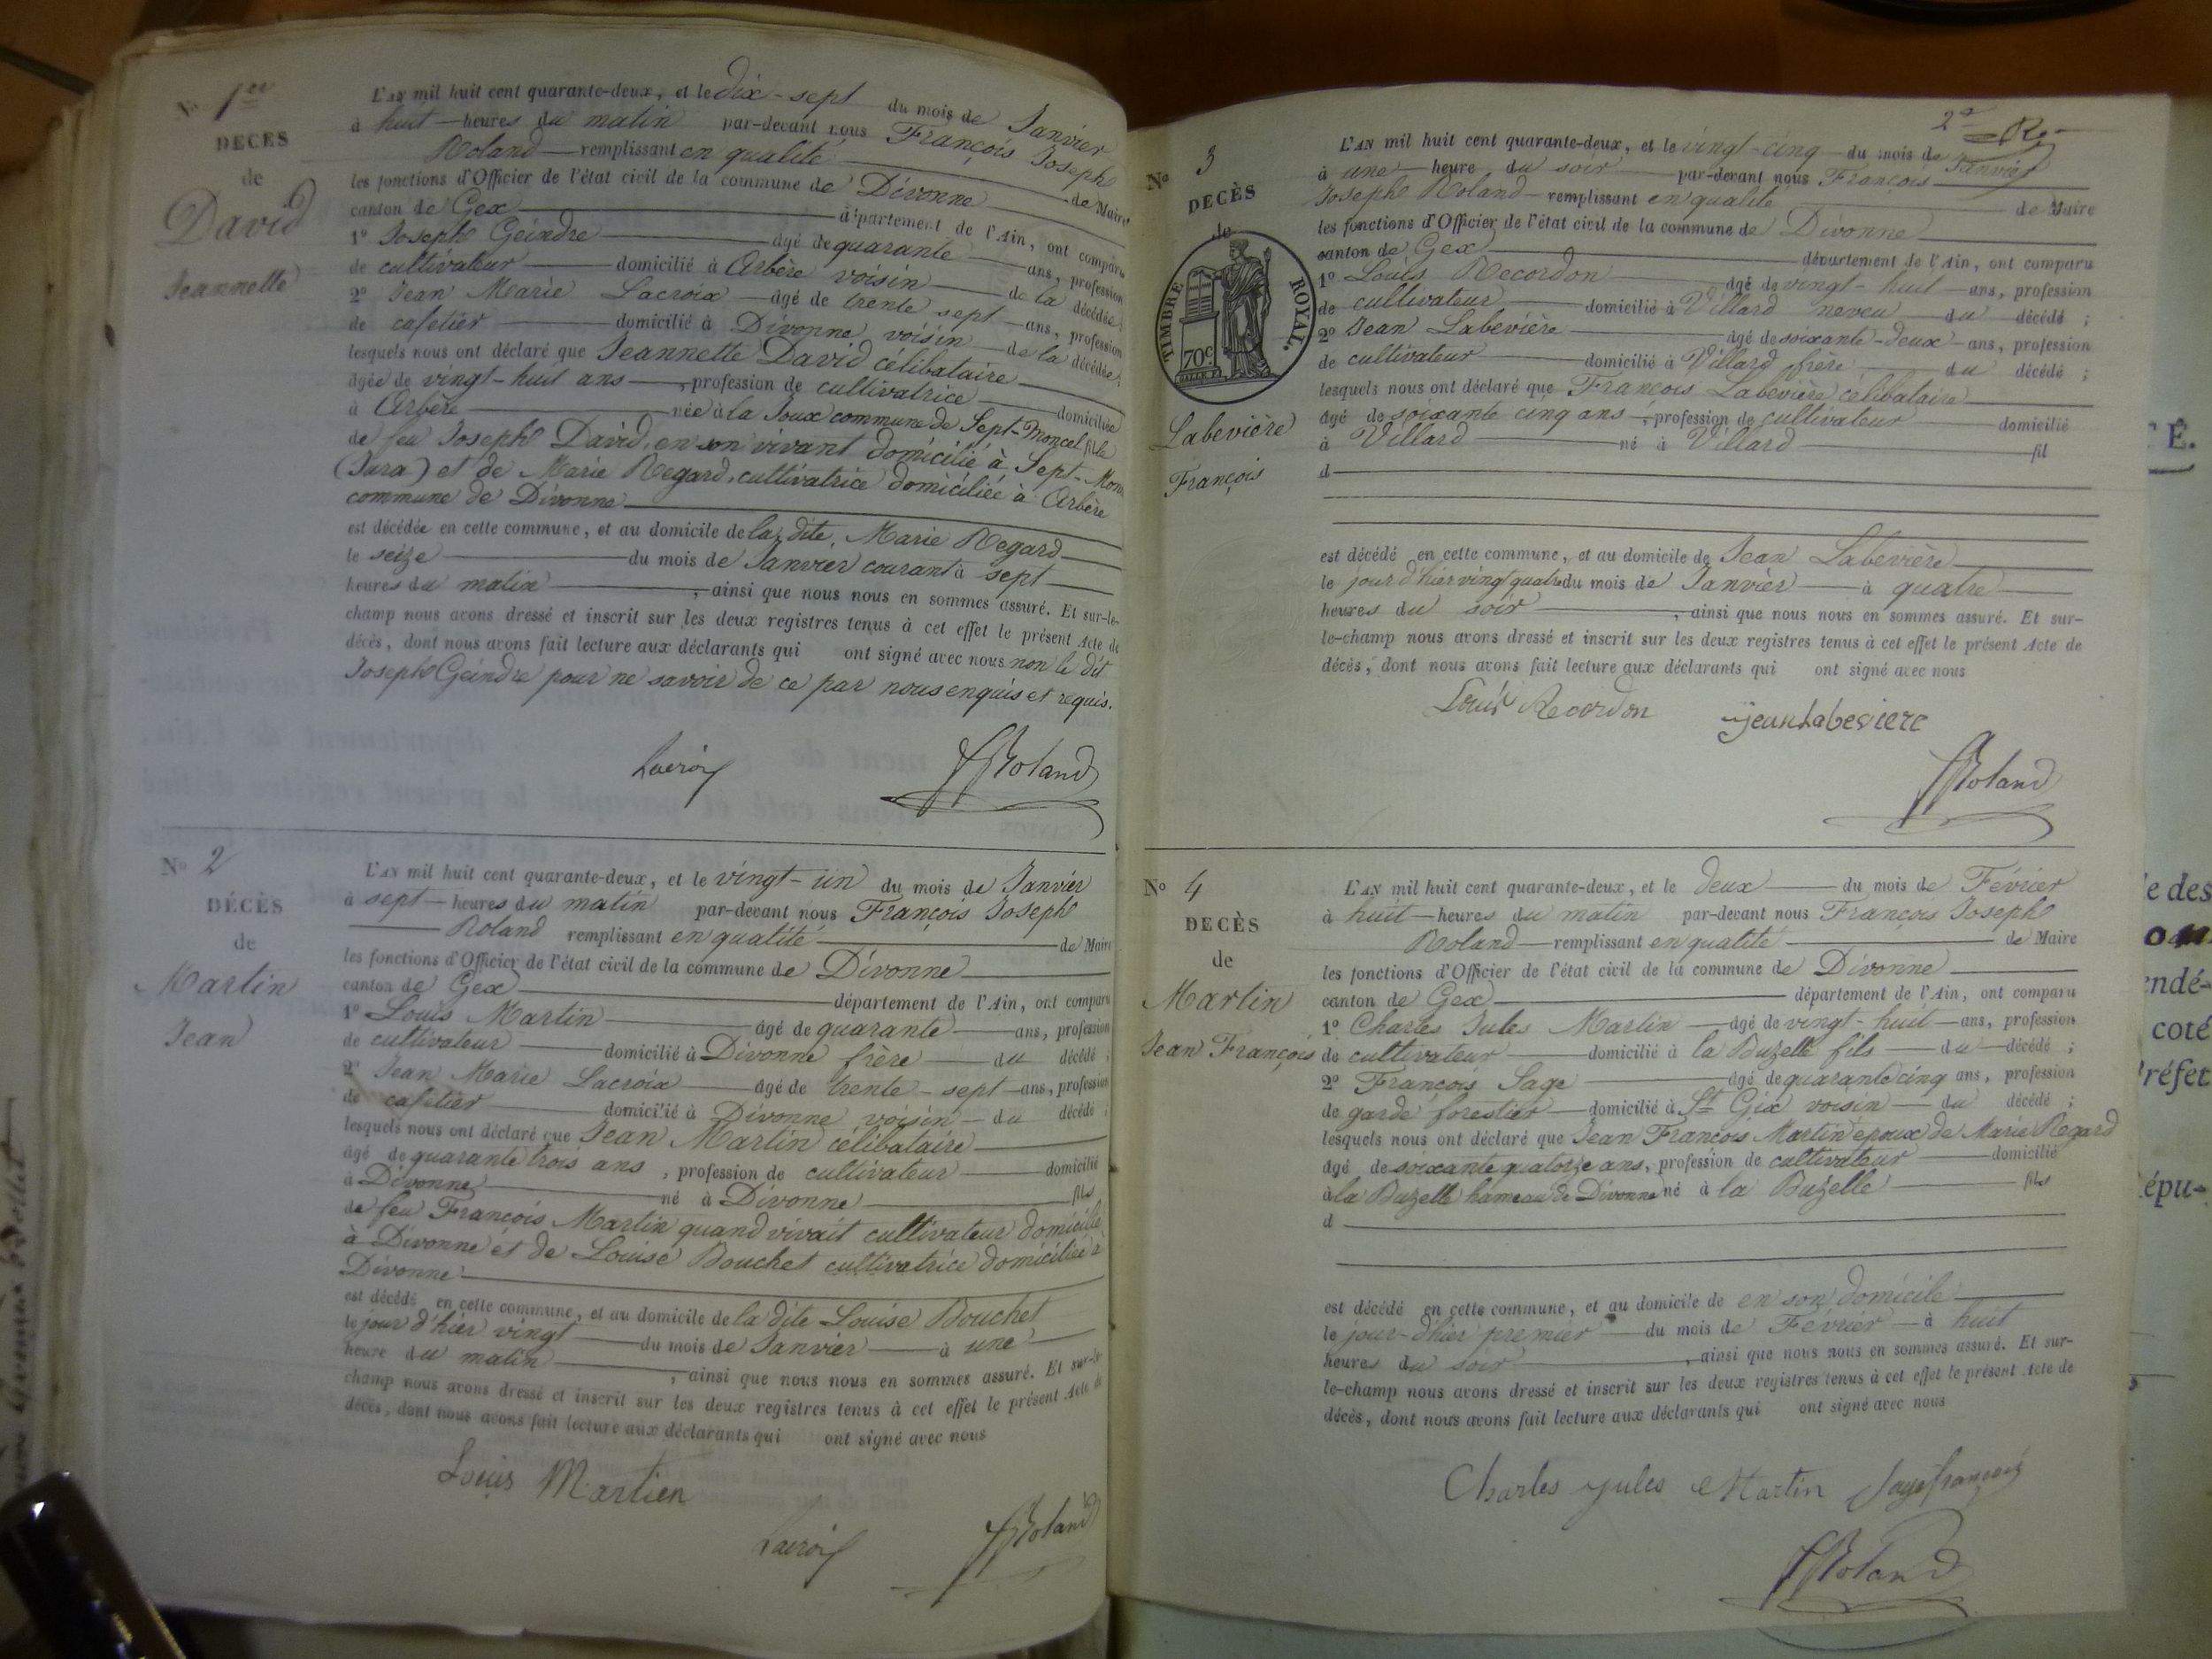 N° 1er
DÉCÈS
de
David
Jeannette
L'AN mil huit cent quarante-deux, et le dix-sept du mois de Janvier
à huit heures du matin par-devant nous François Joseph
Roland remplissant en qualité de Maire
les fonctions d'Officier de l'état civil de la commune de Divonne
canton de Gex département de l'Ain, ont comparu
1° Joseph Geindre âgé de quarante ans, profession
de cultivateur domicilié à Arbère voisin de la décédée;
2° Jean Marie Lacroix âgé de trente sept ans, profession
de cafetier domicilié à Divonne voisin de la décédée;
lesquels nous ont déclaré que Jeannette David célibataire
âgée de vingt-huit ans, profession de cultivatrice domiciliée
à Arbère née à la Joux commune de Sept-Moncel fille
de feu Joseph David, en son vivant domicilié à Sept-Mon
(Jura) et de Marie Regard, cultivatrice domiciliée à Arbère
commune de Divonne
est décédée en cette commune, et au domicile de la dite Marie Regard
le seize du mois de Janvier courant à sept
heures du matin, ainsi que nous nous en sommes assuré. Et sur-le-
champ nous avons dressé et inscrit sur les deux registres tenus à cet effet le présent Acte de
décès, dont nous avons fait lecture aux déclarants qui ont signé avec nous non le dit
Joseph Geindre pour ne savoir de ce par nous enquis et requis.
Lacroix FJRoland
N° 2
DÉCÈS
de
Martin
Jean
L'AN mil huit cent quarante-deux, et le vingt-un du mois de Janvier
à sept heures du matin par-devant nous François Joseph
Roland remplissant en qualité de Maire
les fonctions d'Officier de l'état civil de la commune de Divonne
canton de Gex département de l'Ain, ont comparu
1° Louis Martin âgé de quarante ans, profession
de cultivateur domicilié à Divonne frère du décédé;
2° Jean Marie Lacroix âgé de trente-sept ans, profession
de cafetier domicilié à Divonne voisin du décédé;
lesquels nous ont déclaré que Jean Martin célibataire
âgé de quarante trois ans, profession de cultivateur domicilié
à Divonne né à Divonne fils
de feu François Martin quand vivait cultivateur domicilié
à Divonne et de Louise Bouchet cultivatrice domiciliée à
Divonne
est décédé en cette commune, et au domicile de la dite Louise Bouchet
le jour d'hier vingt du mois de Janvier à une
heure du matin, ainsi que nous nous en sommes assuré. Et sur-le-
champ nous avons dressé et inscrit sur les deux registres tenus à cet effet le présent Acte de
décès, dont nous avons fait lecture aux déclarants qui ont signé avec nous
Louis Martien
Lacroix FJRoland
2e
N° 3
DÉCÈS
de
TIMBRE ROYAL.
70c
Labevière
François
L'AN mil huit cent quarante-deux, et le vingt-cinq du mois de Janvier
à une heure du soir par-devant nous François
Joseph Roland remplissant en qualité de Maire
les fonctions d'Officier de l'état civil de la commune de Divonne
canton de Gex département de l'Ain, ont comparu
1° Louis Recordon âgé de vingt-huit ans, profession
de cultivateur domicilié à Villard neveu du décédé;
2° Jean Labevière âgé de soixante-deux ans, profession
de cultivateur domicilié à Villard frère du décédé;
lesquels nous ont déclaré que François Labevière célibataire
âgé de soixante cinq ans, profession de cultivateur domicilié
à Villard né à Villard fil
d
est décédé en cette commune, et au domicile de Jean Labevière
le jour d'hier vingt quatre du mois de Janvier à quatre
heures du soir, ainsi que nous nous en sommes assuré. Et sur-
le-champ nous avons dressé et inscrit sur les deux registres tenus à cet effet le présent Acte de
décès, dont nous avons fait lecture aux déclarants qui ont signé avec nous
Louis Recordon jean Labeviere
FJRoland
N° 4
DÉCÈS
de
Martin
Jean François
L'AN mil huit cent quarante-deux, et le deux du mois de Février
à huit heures du matin par-devant nous François Joseph
Roland remplissant en qualité de Maire
les fonctions d'Officier de l'état civil de la commune de Divonne
canton de Gex département de l'Ain, ont comparu
1° Charles Jules Martin âgé de vingt-huit ans, profession
de cultivateur domicilié à la Buzelle fils du décédé;
2° François Sage âgé de quarante cinq ans, profession
de garde forestier domicilié à St Gix voisin du décédé;
lesquels nous ont déclaré que Jean François Martin époux de Marie Regard
âgé de soixante quatorze ans, profession de cultivateur domicilié
à la Buzelle hameau de Divonne né à la Buzelle fils
d
est décédé en cette commune, et au domicile de en son domicile
le jour-d'hier premier du mois de Février à huit
heures du soir, ainsi que nous nous en sommes assuré. Et sur-
le-champ nous avons dressé et inscrit sur les deux registres tenus à cet effet le présent Acte de
décès, dont nous avons fait lecture aux déclarants qui ont signé avec nous
Charles jules Martin Sage françois
FJRoland
É.
e des
endé-
coté
réfet
épu-